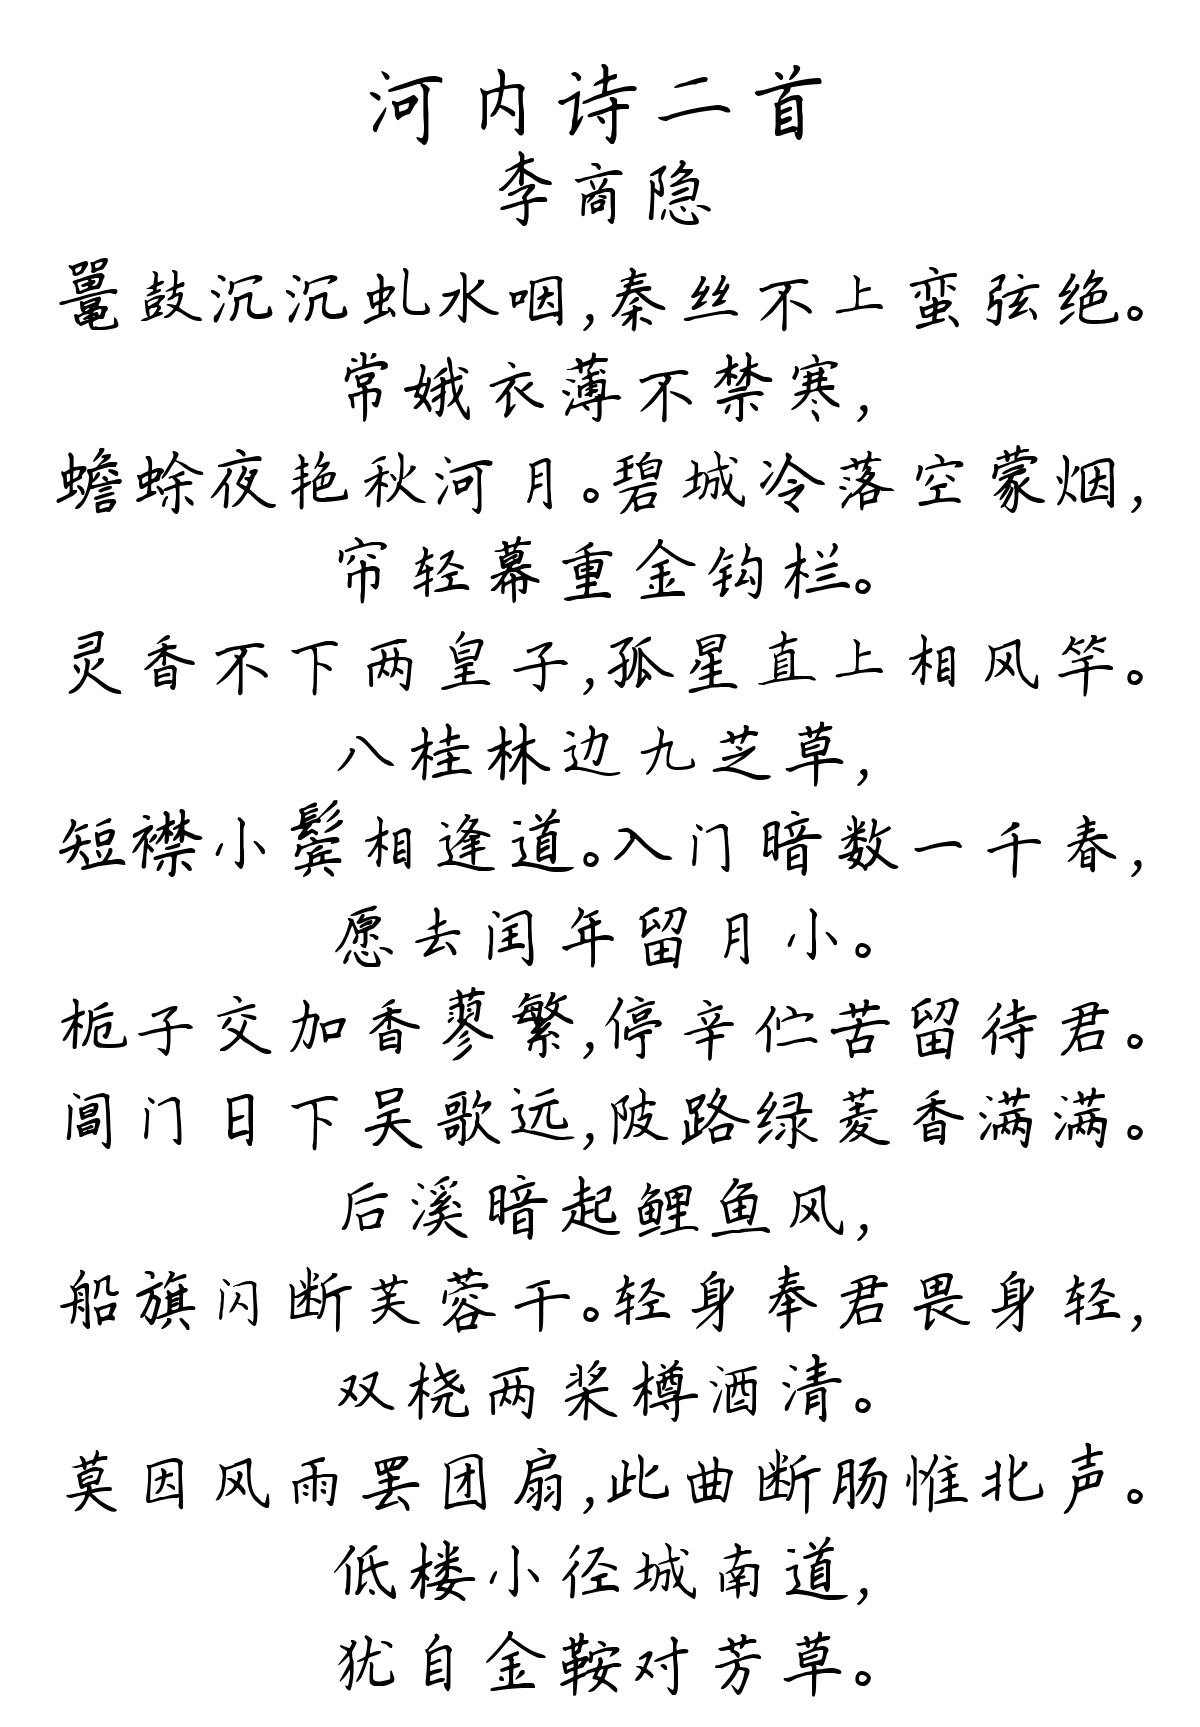 河内诗二首
李商隐
鼍鼓沉沉虬水咽,秦丝不上蛮弦绝。
常娥衣薄不禁寒,
蟾蜍夜艳秋河月。碧城冷落空蒙烟,
帘轻幕重金钩栏。
灵香不下两皇子,孤星直上相风竿。
八桂林边九芝草,
短襟小鬓相逢道。入门暗数一千春,
愿去闰年留月小。
栀子交加香蓼繁,停辛伫苦留待君。
阊门日下吴歌远,陂路绿菱香满满。
后溪暗起鲤鱼风,
船旗闪断芙蓉干。轻身奉君畏身轻,
双桡两桨樽酒清。
莫因风雨罢团扇,此曲断肠惟北声。
低楼小径城南道,
犹自金鞍对芳草。